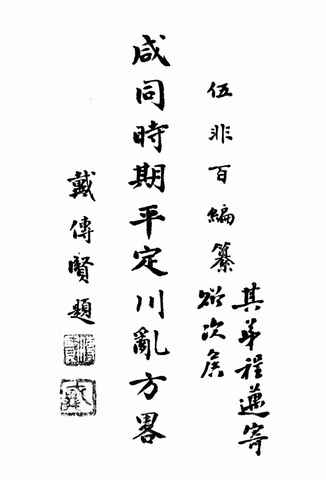 其弟程寄
伍非百編纂
次侯
咸同時期平定川亂方畧
戴傳賢題